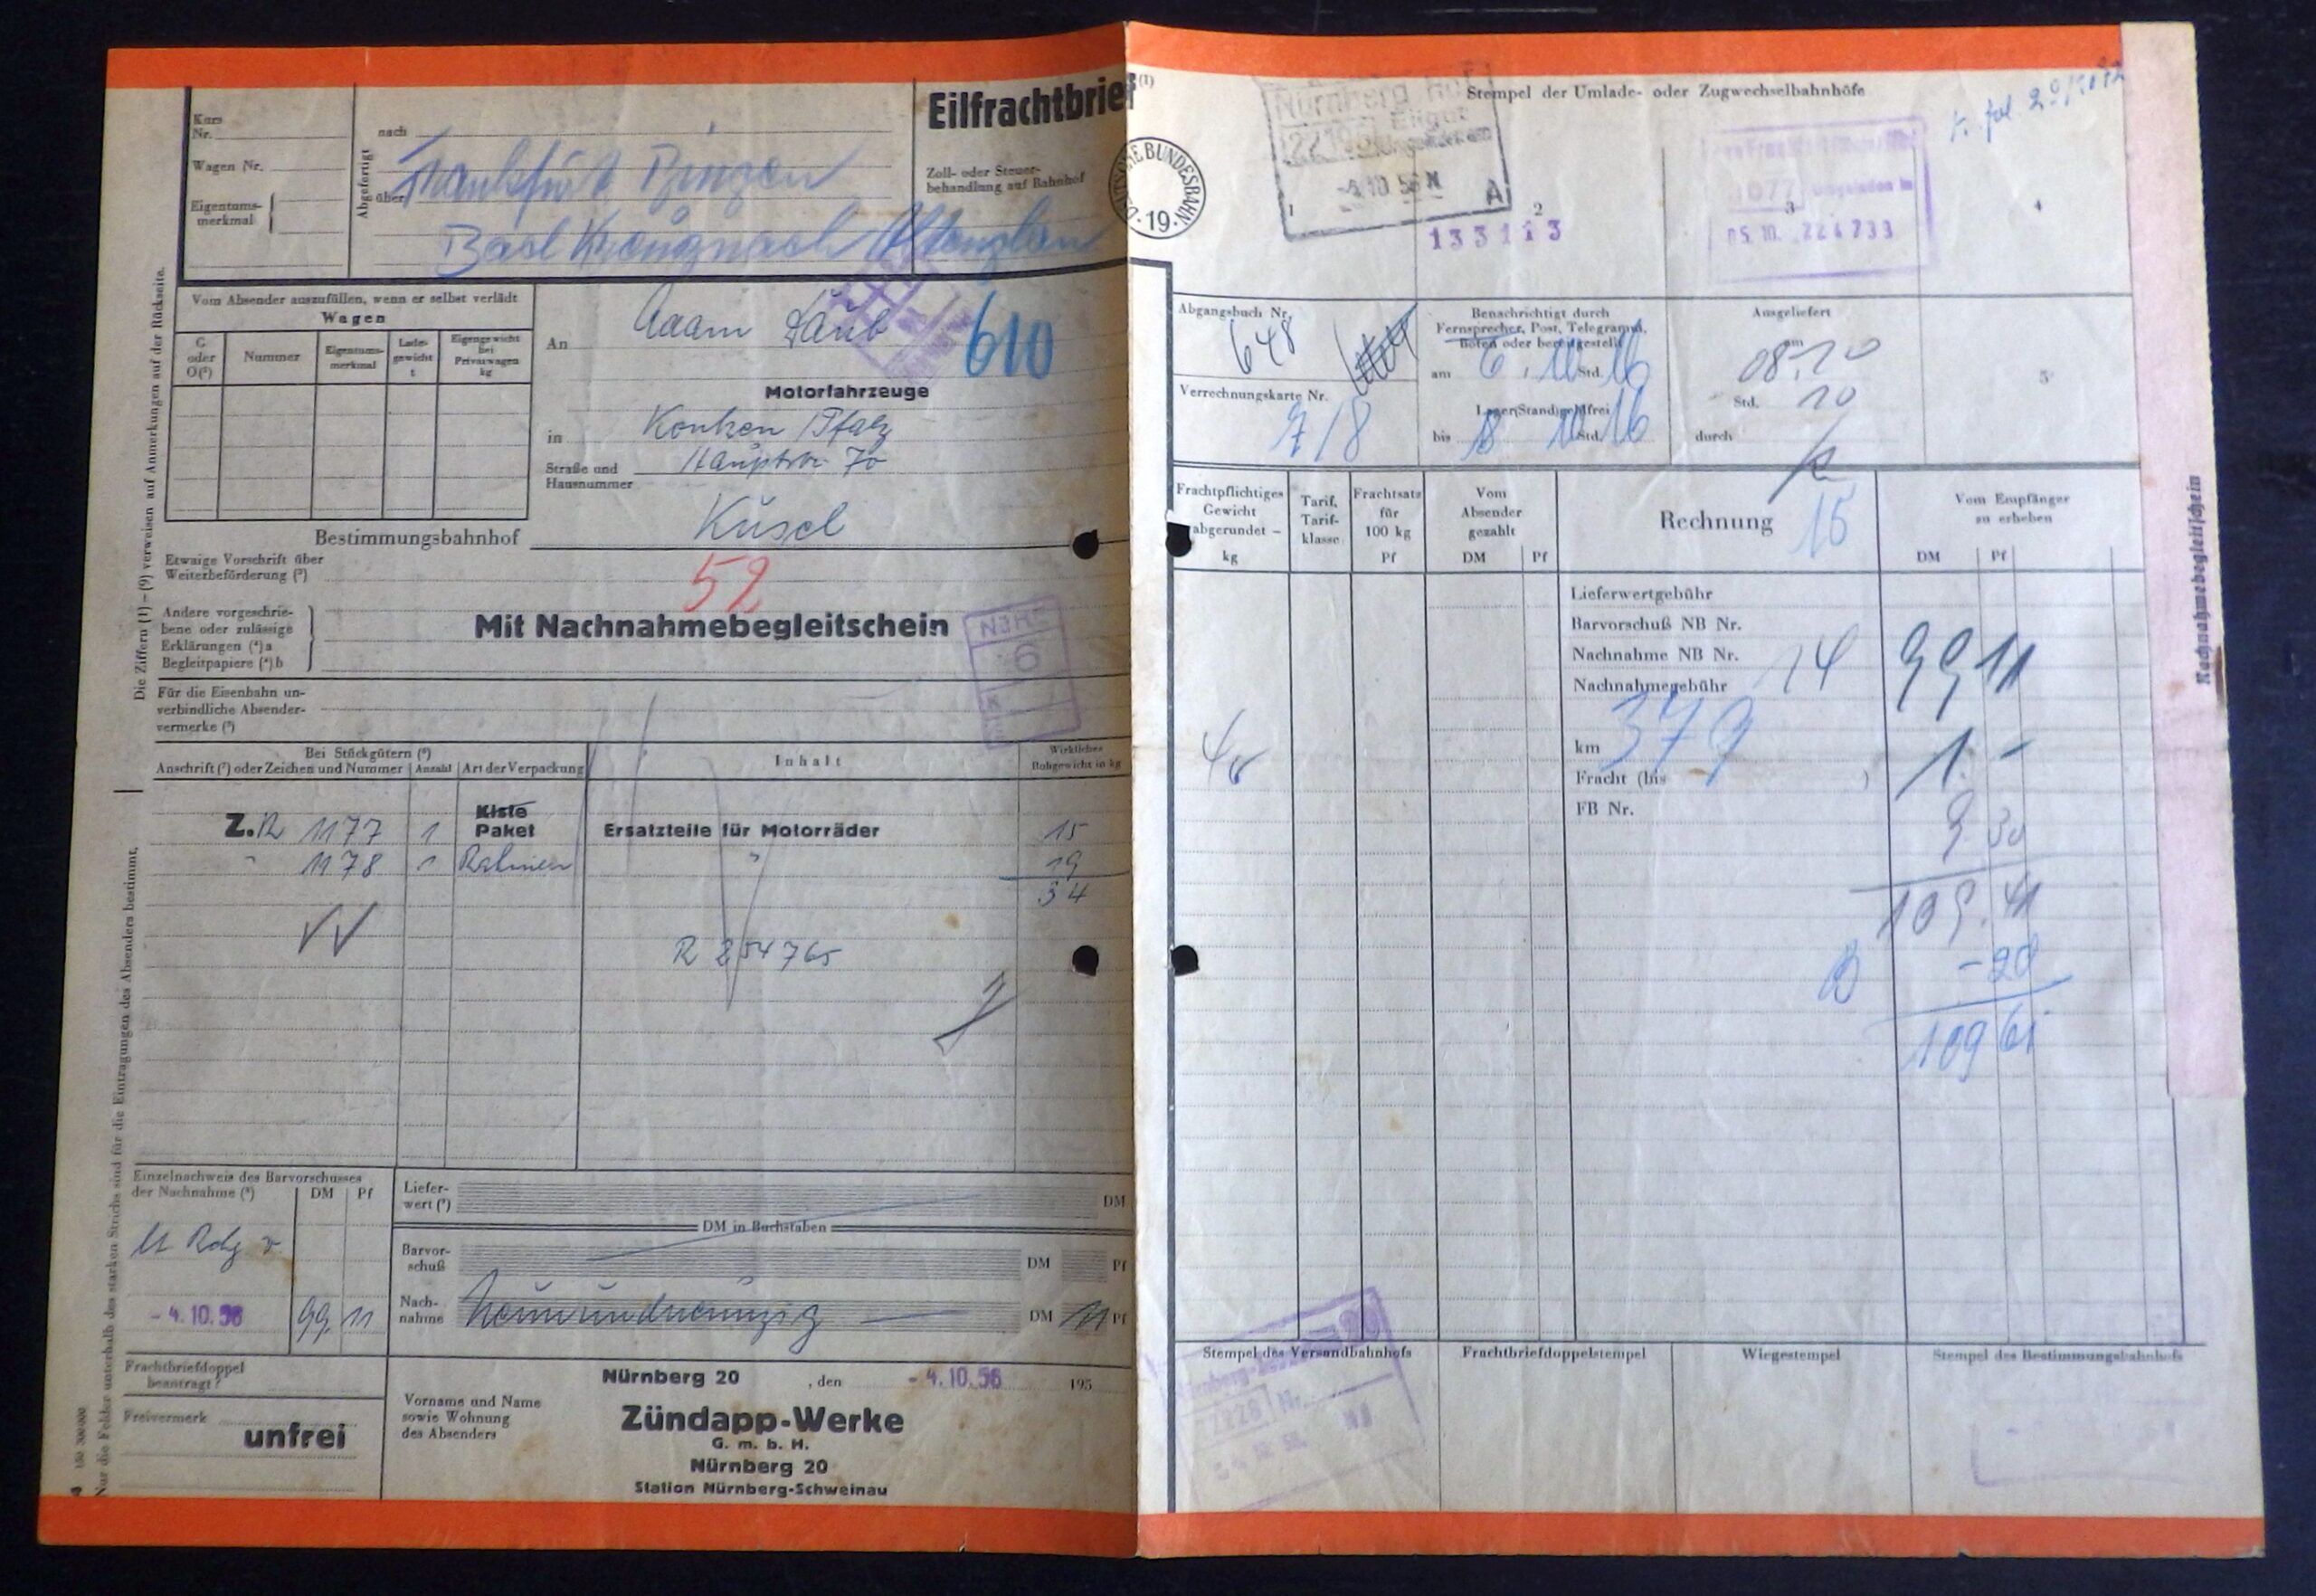 Eilfrachtbrief (1)
Kurs
Nr.
Wagen Nr.
Eigentums-
merkmal
Abgefertigt
nach
über
Frankfurt Bingen
Bad Kreuznach Altenglan
Zoll- oder Steuer-
behandlung auf Bahnhof
DEUTSCHE BUNDESBAHN
· 19 ·
Die Ziffern (1) – (9) verweisen auf Anmerkungen auf der Rückseite.
Vom Absender auszufüllen, wenn er selbst verlädt
Wagen
G
oder
O(²)
Nummer
Eigentums-
merkmal
Lade-
gewicht
t
Eigengewicht
bei
Privatwagen
kg
An
Adam Laub
610
Motorfahrzeuge
in
Konken Pfalz
Straße und
Hausnummer
Hauptstr. 70
Bestimmungsbahnhof
Kusel
Etwaige Vorschrift über
Weiterbeförderung (³)
52
Andere vorgeschrie-
bene oder zulässige
Erklärungen (⁴) a
Begleitpapiere (⁴) b
Mit Nachnahmebegleitschein
6
Für die Eisenbahn un-
verbindliche Absender-
vermerke (⁵)
Bei Stückgütern (⁶)
Anschrift (⁷) oder Zeichen und Nummer
Anzahl
Art der Verpackung
Inhalt
Wirkliches
Rohgewicht in kg
Kiste
Z.R 1177 1 Paket Ersatzteile für Motorräder 15
" 1178 1 Rahmen " 19
34
R 854765
Nur die Felder unterhalb des starken Strichs sind für die Eintragungen des Absenders bestimmt.
Einzelnachweis des Barvorschusses
der Nachnahme (⁸)
DM Pf
- 4.10.56 99 11
Liefer-
wert (⁹)
DM
DM in Buchstaben
Barvor-
schuß
DM Pf
Nach-
nahme
Neunundneunzig
DM 11 Pf
Frachtbriefdoppel
beantragt?
Freivermerk
unfrei
Nürnberg 20, den - 4.10.56 195
Vorname und Name
sowie Wohnung
des Absenders
Zündapp-Werke
G. m. b. H.
Nürnberg 20
Station Nürnberg-Schweinau
Stempel der Umlade- oder Zugwechselbahnhöfe
Nürnberg Hbf
Eilgut
-4.10 56 N
A
1
2
133113
1077 Umgeladen in
3
05.10. 224733
4
Abgangsbuch Nr.
648
Verrechnungskarte Nr.
718
Benachrichtigt durch
Fernsprecher, Post, Telegramm,
Boten oder bereitgestellt
am 6. 10 Std. 16
Lager(Stand)geldfrei
bis 8 10 Std. 16
Ausgeliefert
am 08.10
Std. 10
durch
5
Frachtpflichtiges
Gewicht
abgerundet –
kg
Tarif,
Tarif-
klasse
Frachtsatz
für
100 kg
Pf
Vom
Absender
gezahlt
DM Pf
Rechnung
15
Vom Empfänger
zu erheben
DM Pf
Lieferwertgebühr
Barvorschuß NB Nr.
Nachnahme NB Nr. 14 99 11
Nachnahmegebühr
40
km 379 1. –
Fracht (bis )
FB Nr.
9 30
109.41
-20
109 61
Stempel des Versandbahnhofs
Frachtbriefdoppelstempel
Wiegestempel
Stempel des Bestimmungsbahnhofs
Nachnahmebegleitschein